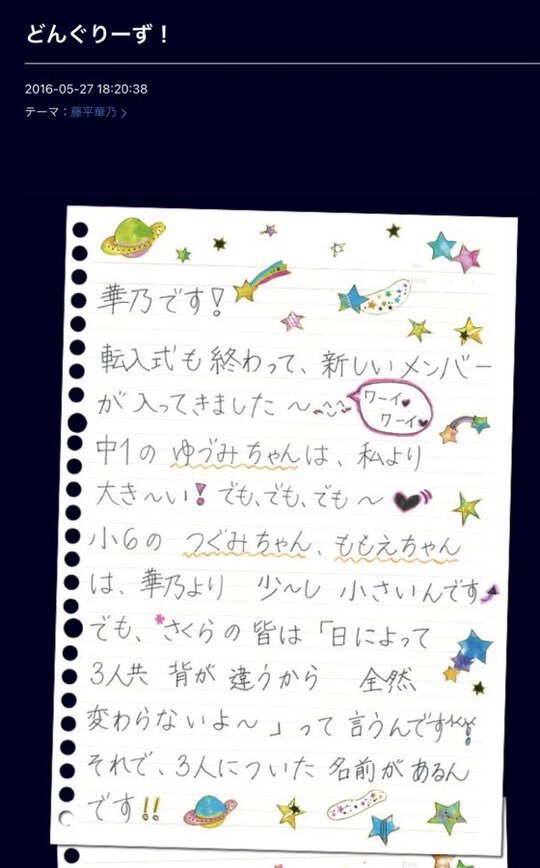 どんぐりーず！
2016-05-27 18:20:38
テーマ：藤平華乃
華乃です！
転入式も終わって、新しいメンバー
が入ってきました～^^
ワーイ♥
ワーイ♥
中1の ゆづみちゃんは、私より
大き～い！でも、でも、でも～♥
小6の つぐみちゃん、ももえちゃん
は、華乃より 少～し 小さいんです
でも、*さくらの皆は「日によって
3人共 背が 違うから 全然
変わらないよ～」って 言うんです^^!
それで、3人についた 名前が あるん
です!!